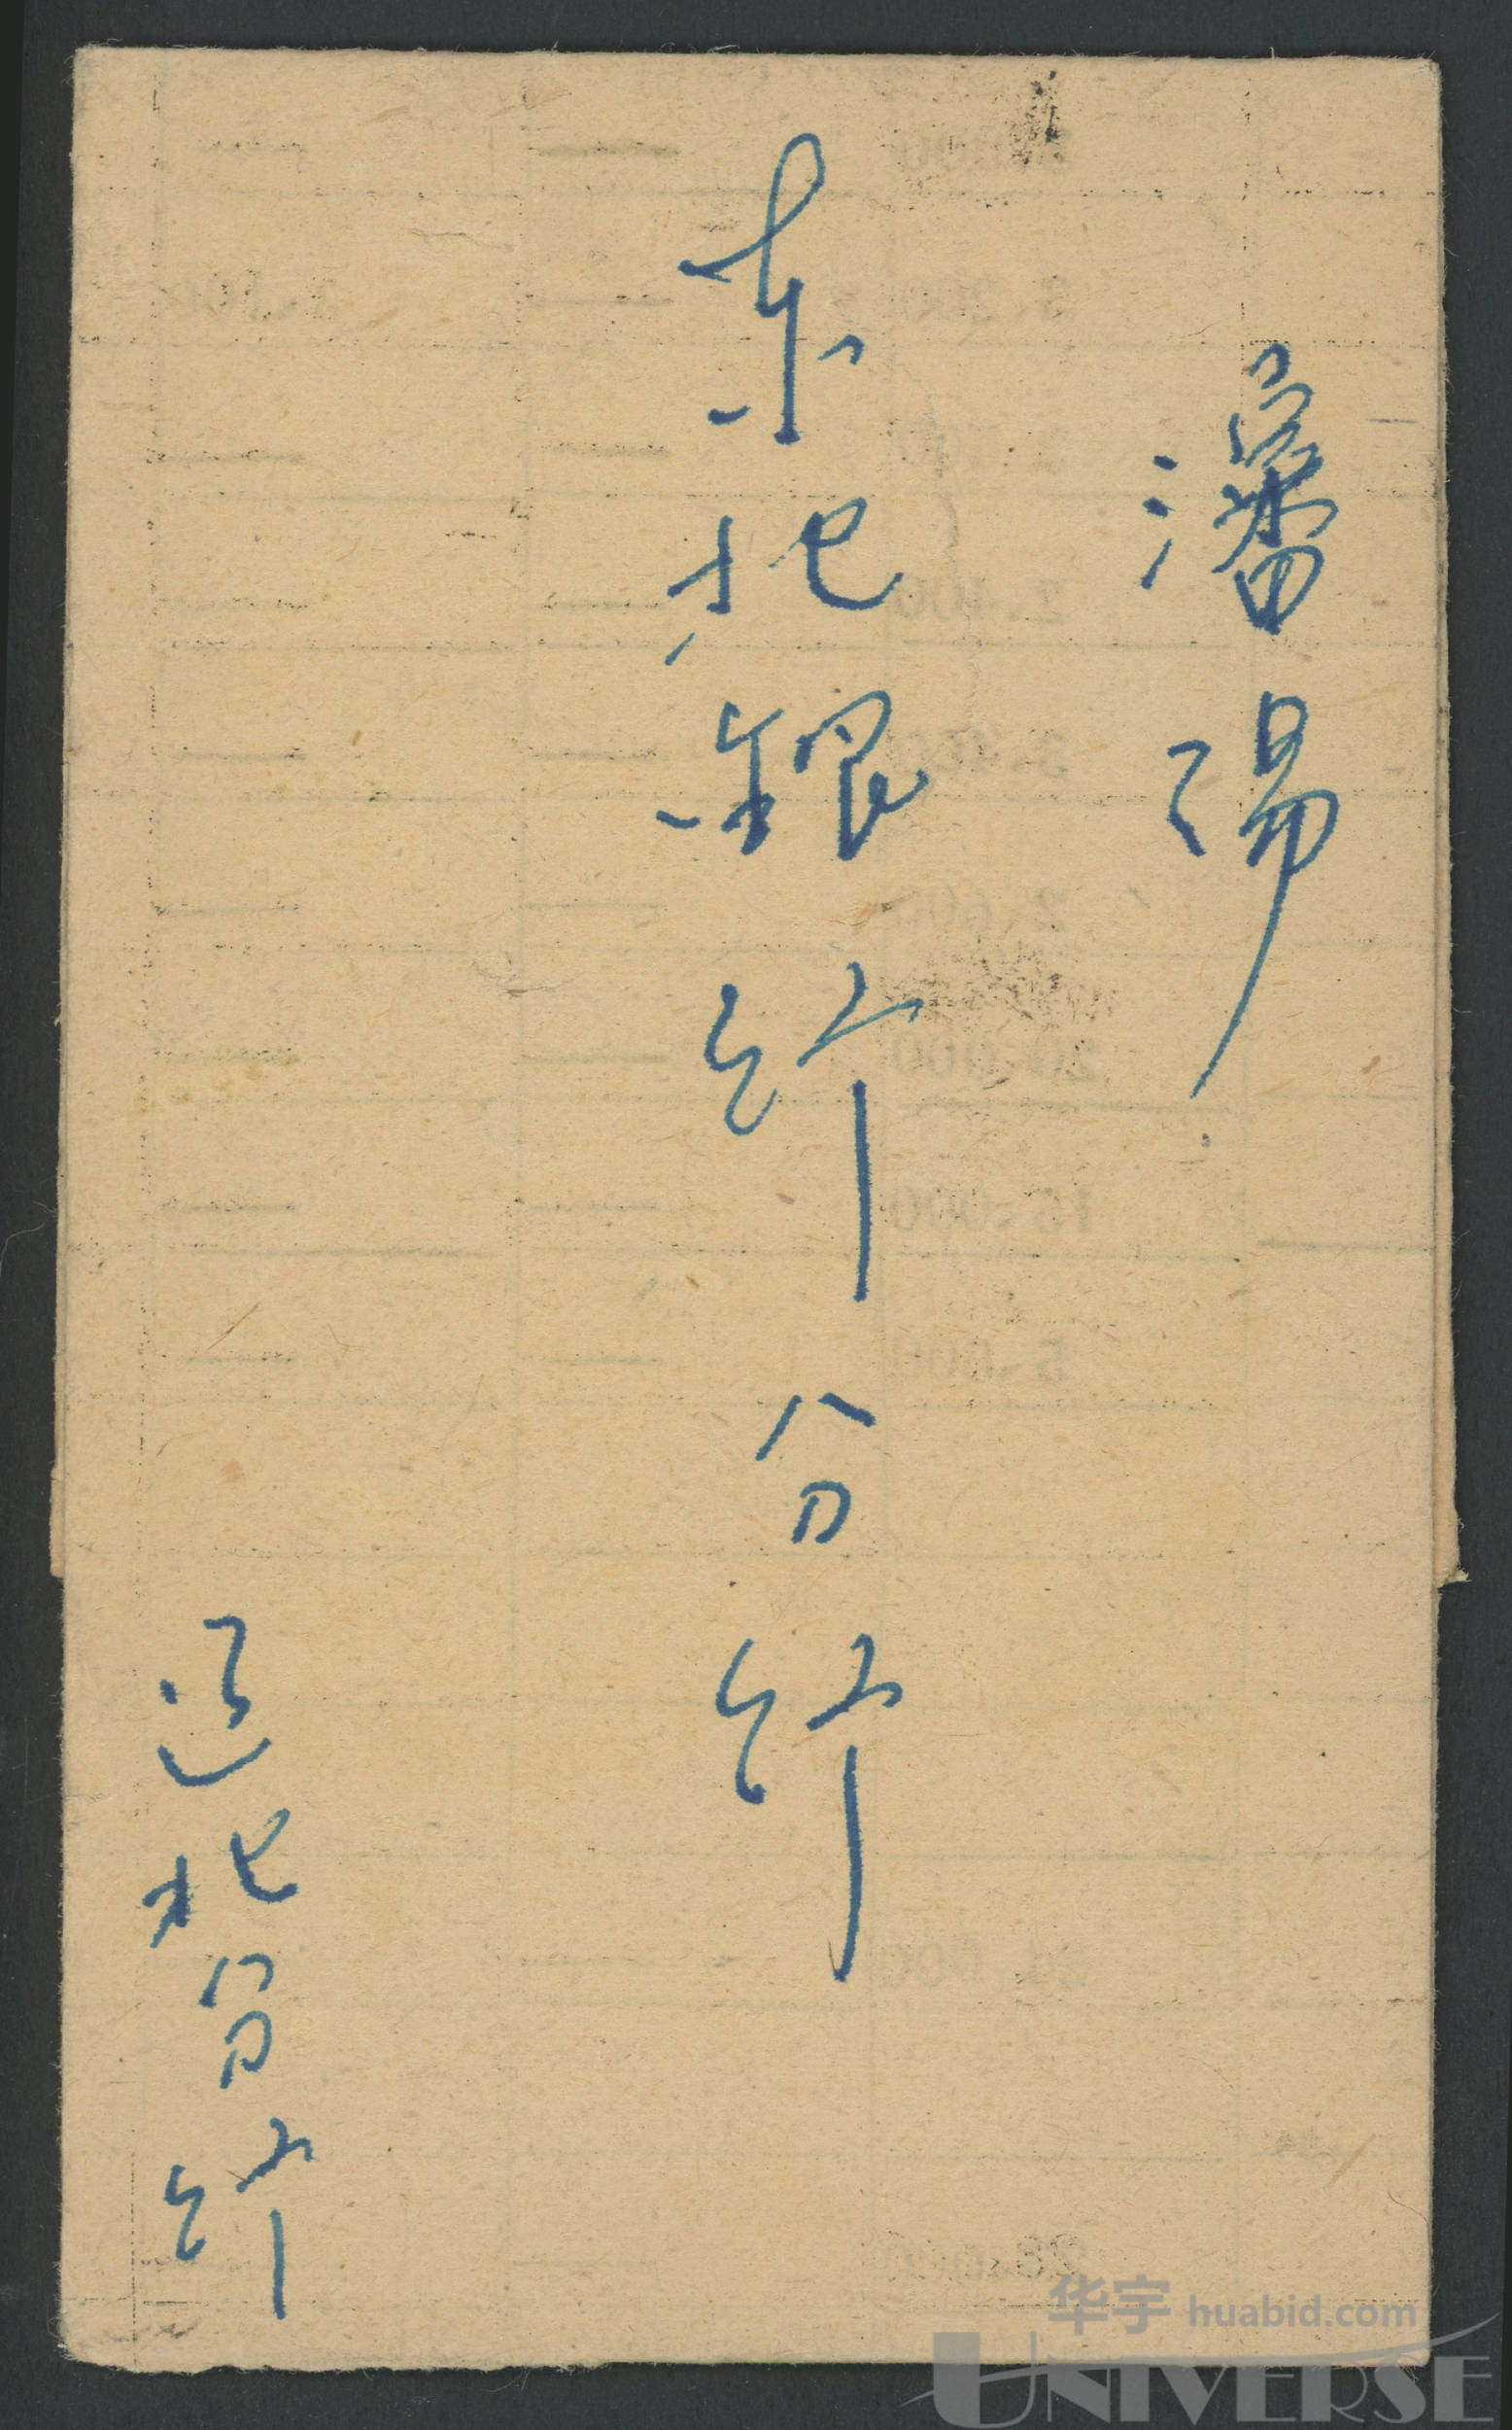 瀋陽
东北銀行分行
辽北分行
华宇 huabid.com
UNIVERSE